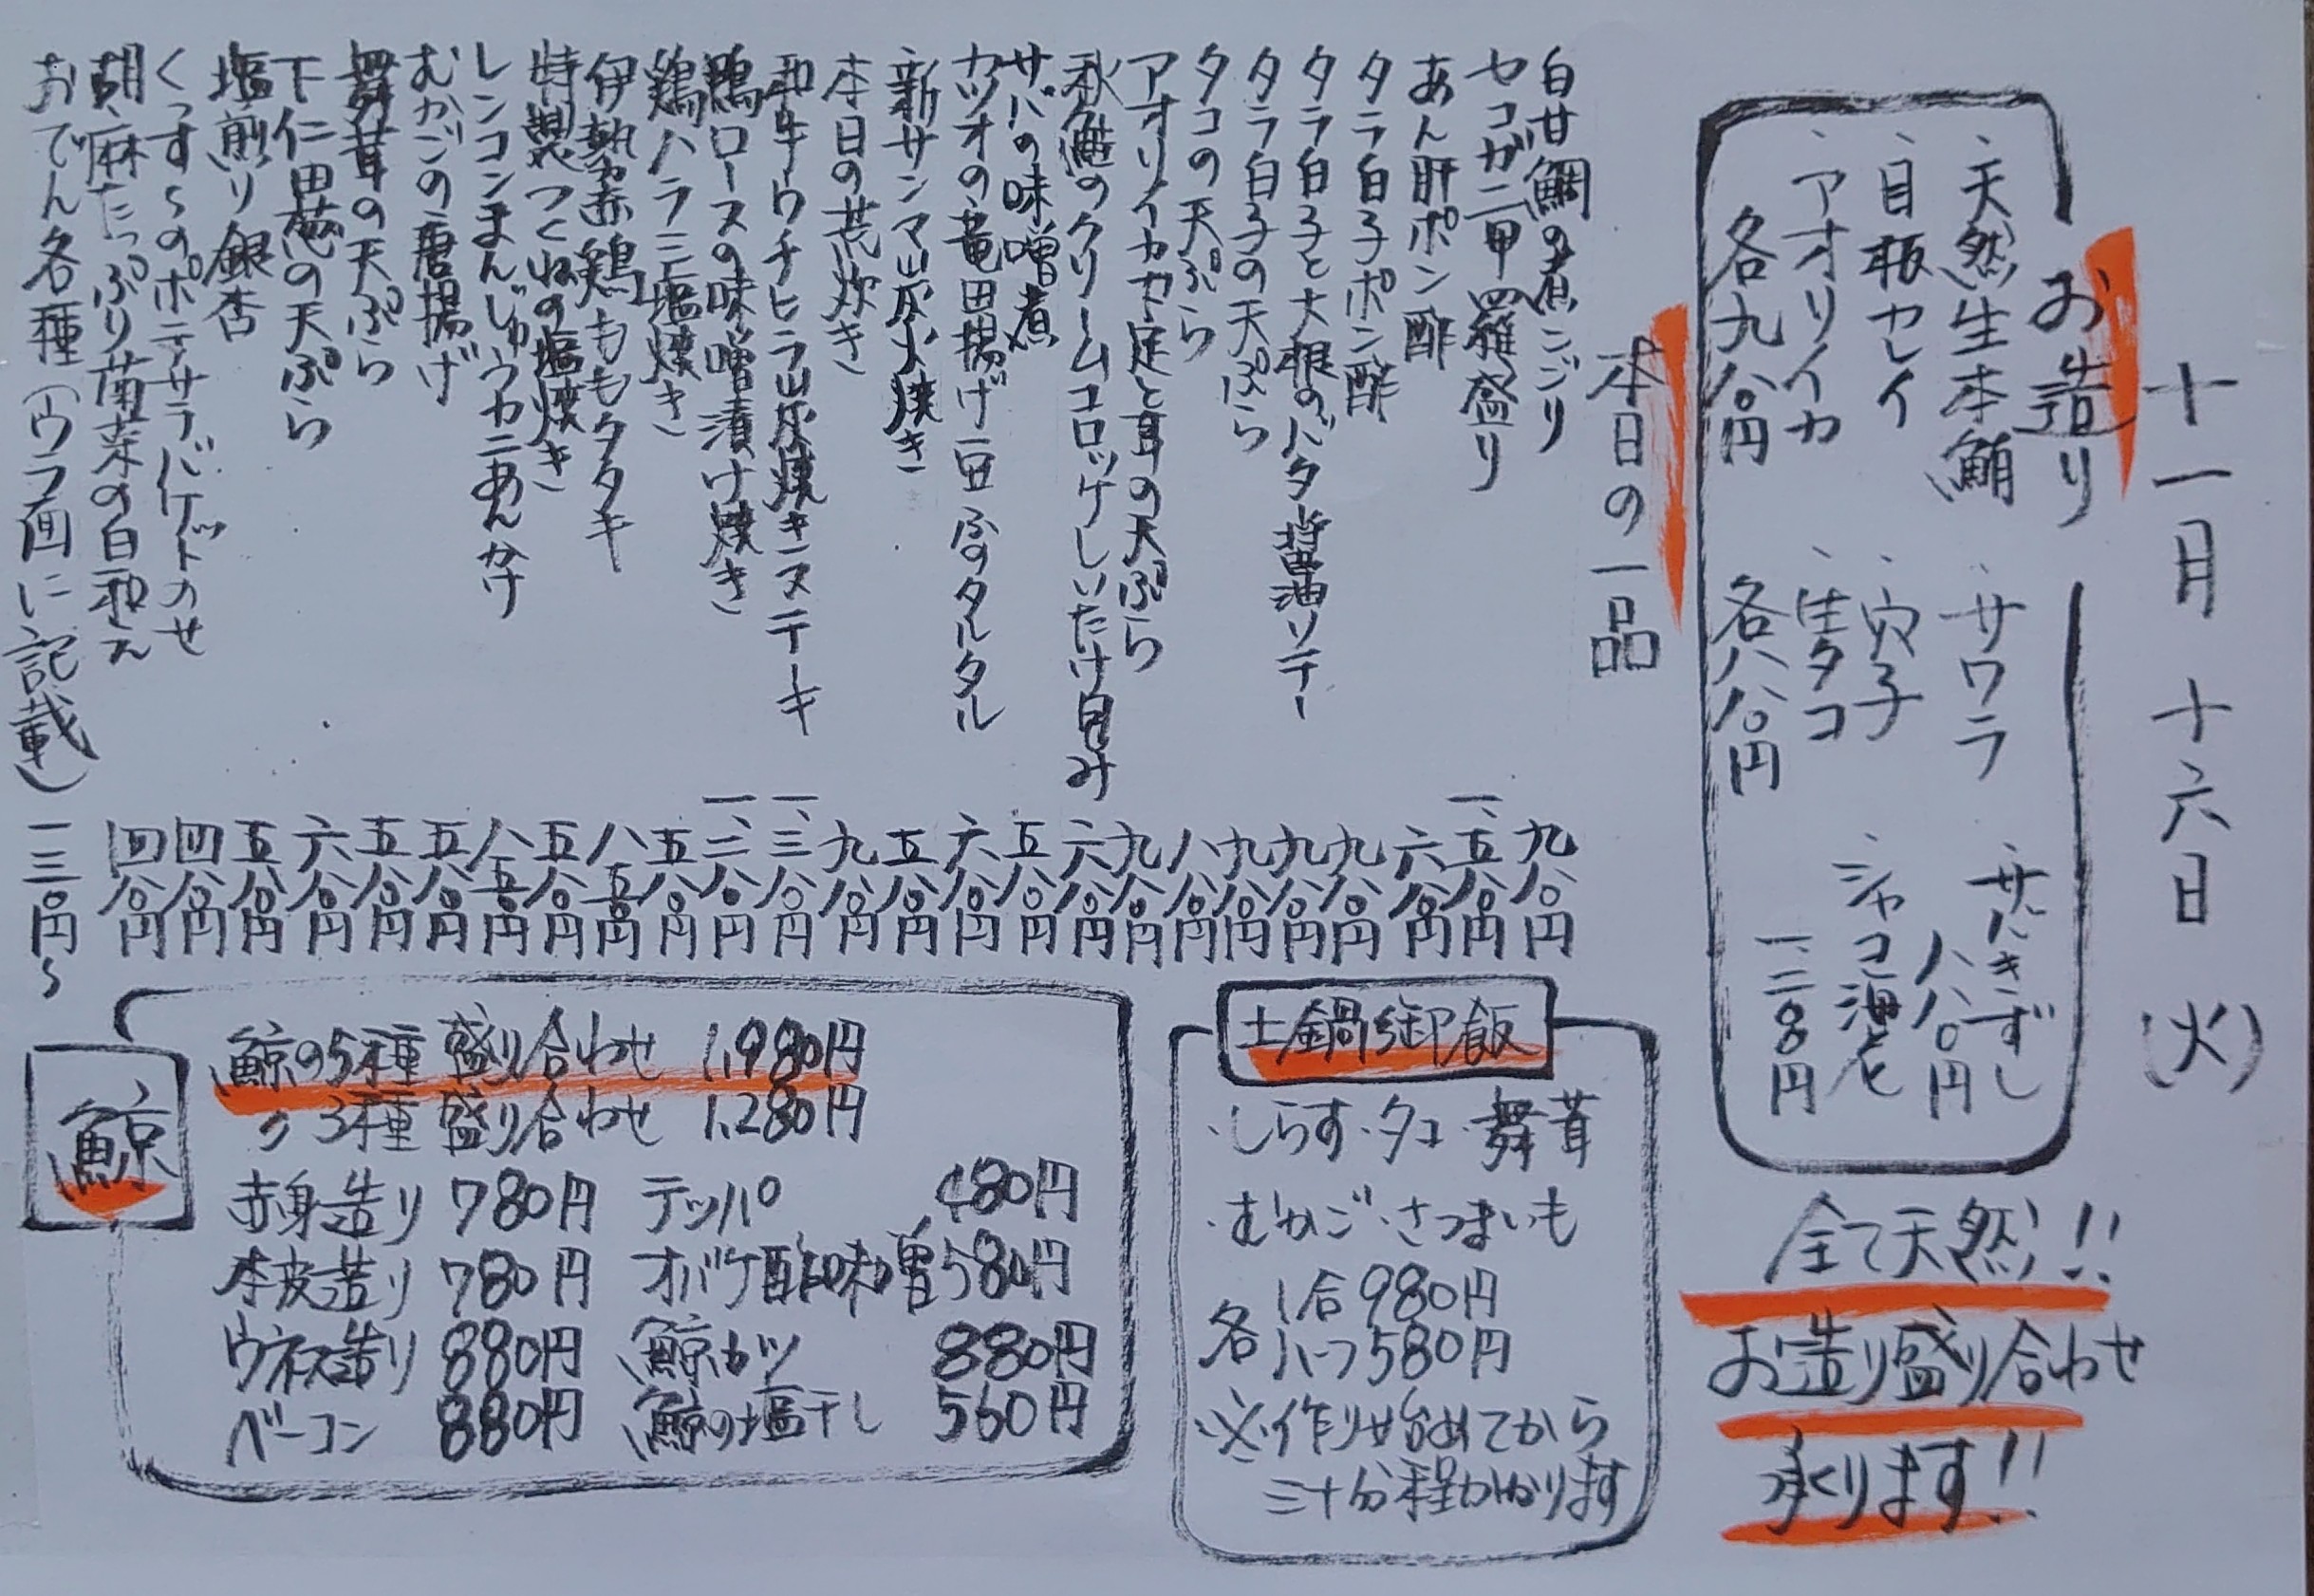 十一月十六日(火)
お造り
、天然生本鮪
、目板カレイ
、アオリイカ
各九八〇円
、サワラ
、穴子
、生タコ
各八八〇円
、サバきずし
八八〇円
、シャコ海老
一、二八〇円
全て天然!!
お造り盛り合わせ
承ります!!
本日の一品
白甘鯛の煮こごり 九八〇円
セコガニ甲羅盛り 一、五八〇円
あん肝ポン酢 六八〇円
タラ白子ポン酢 九八〇円
タラ白子と大根のバタ醤油ソテー 九八〇円
タラ白子の天ぷら 九八〇円
タコの天ぷら 八八〇円
アオリイカ下足と耳の天ぷら 九八〇円
秋鮭のクリームコロッケしいたけ包み 六八〇円
サバの味噌煮 五八〇円
カツオの竜田揚げ豆ふのタルタル 六八〇円
新サンマ炭火焼き 五八〇円
本日の荒炊き 九八〇円
和牛ウチヒラ炭焼きステーキ 一、三八〇円
鴨ロースの味噌漬け焼き 一、二八〇円
鶏ハラミ塩焼き 五八〇円
伊勢赤鶏ももタタキ 八五〇円
特製つくねの塩焼き 五八〇円
レンコンまんじゅうカニあんかけ 八五〇円
むかごの唐揚げ 五八〇円
舞茸の天ぷら 五八〇円
下仁田葱の天ぷら 六八〇円
塩煎り銀杏 五八〇円
くっすーのポテサラバケットのせ 四八〇円
胡麻たっぷり菊菜の白和え 四八〇円
おでん各種(ウラ面に記載) 一三〇円〜
土鍋御飯
・しらす・タコ・舞茸
・むかご・さつまいも
各 1合980円
ハーフ580円
※作り始めてから
三十分程かかります
鯨
鯨の5種盛り合わせ 1,980円
〃3種盛り合わせ 1,280円
赤身造り 780円 テッパ 480円
本皮造り 780円 オバケ酢味噌 580円
ウネス造り 880円 鯨カツ 880円
ベーコン 880円 鯨の塩干し 560円